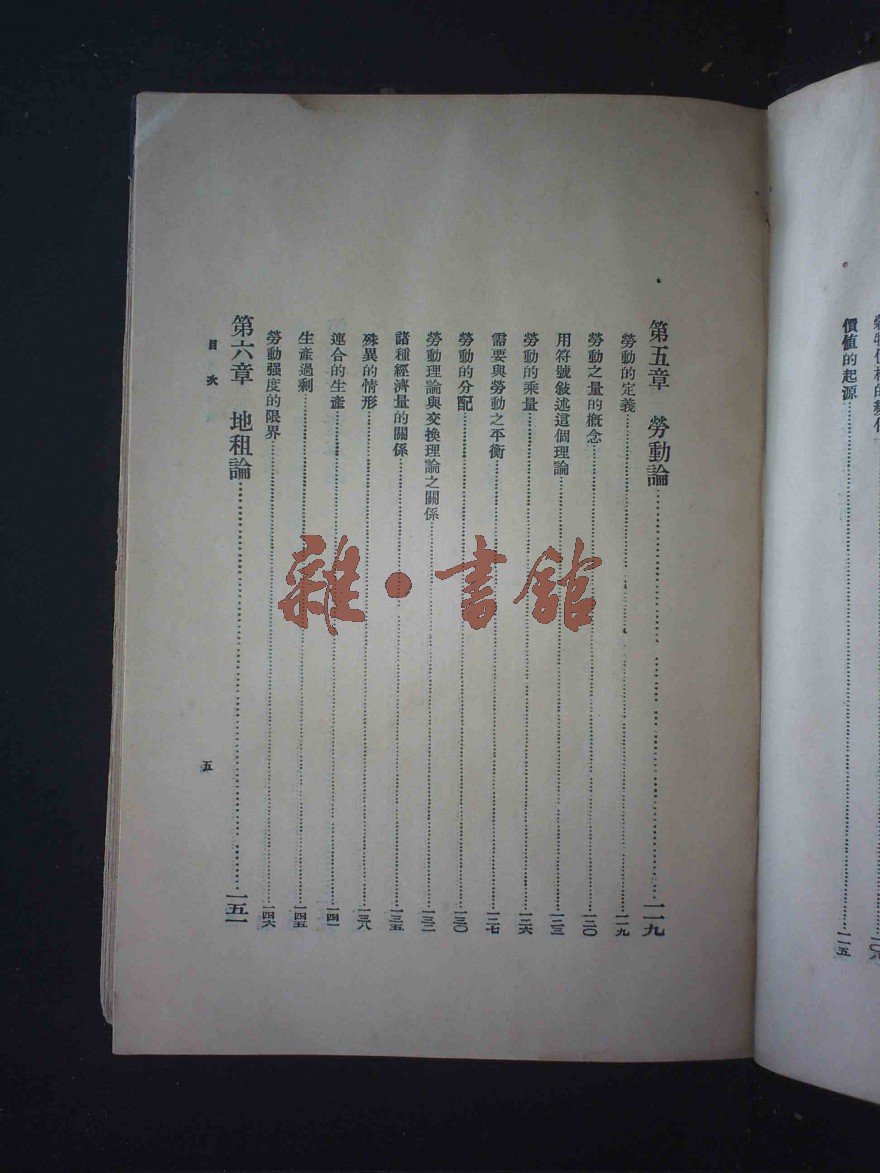 價値的起源……一一五
第五章 勞動論……一一九
勞動的定義……一一九
勞動之量的概念……一二〇
用符號敍述這個理論……一二三
勞動的乘量……一二六
需要與勞動之平衡……一二七
勞動的分配……一三〇
勞動理論與交換理論之關係……一三二
諸種經濟量的關係……一三五
殊異的情形……一三八
連合的生產……一四一
生產過剩……一四五
勞動强度的限界……一四六
第六章 地租論……一五一
目次
五
雜·書館